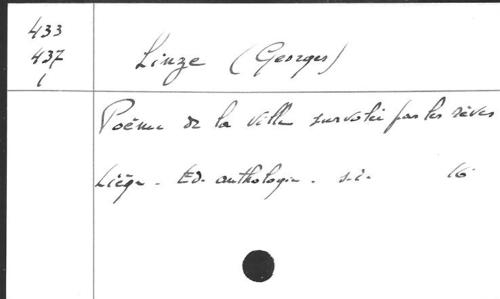 433
437
1
Linze (Georges)
Poème de la ville survolée par les rêves
Liège - Ed. anthologie - s.i. 16